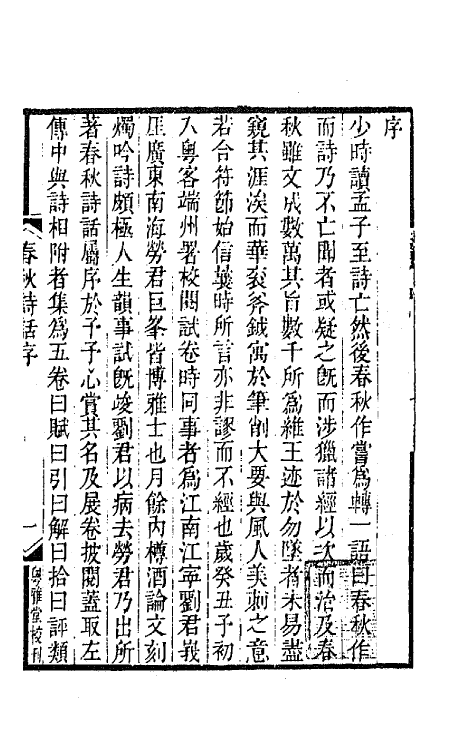 序
少時讀孟子至詩亡然後春秋作嘗爲轉一語曰春秋作
而詩乃不亡聞者或疑之旣而涉獵諸經以次而治及春
秋雖文成數萬其旨數千所爲維王迹於勿墜者未易盡
窺其涯涘而華袞斧鉞寓於筆削大要與風人美刺之意
若合符節始信曩時所言亦非謬而不經也歲癸丑予初
入粵客端州署校閱試卷時同事者爲江南江寧劉君莪
厓廣東南海勞君巨峯皆博雅士也月餘內樽酒論文刻
燭吟詩頗極人生韻事試旣竣劉君以病去勞君乃出所
著春秋詩話屬序於予予心賞其名及展卷披閱蓋取左
傳中與詩相附者集爲五卷曰賦曰引曰解曰拾曰評類
春秋詩話序
一
粵雅堂校刊